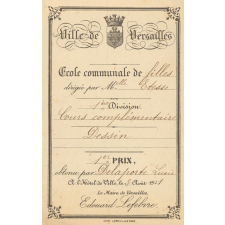 Ville de Versailles
École communale de filles
dirigée par Mlle
1ère Division
Cours complémentaire
Dessin
1er PRIX,
obtenu par Delaporte
A l'Hôtel de Ville, le Août
Le Maire de Versailles,
Edouard Lefebvre